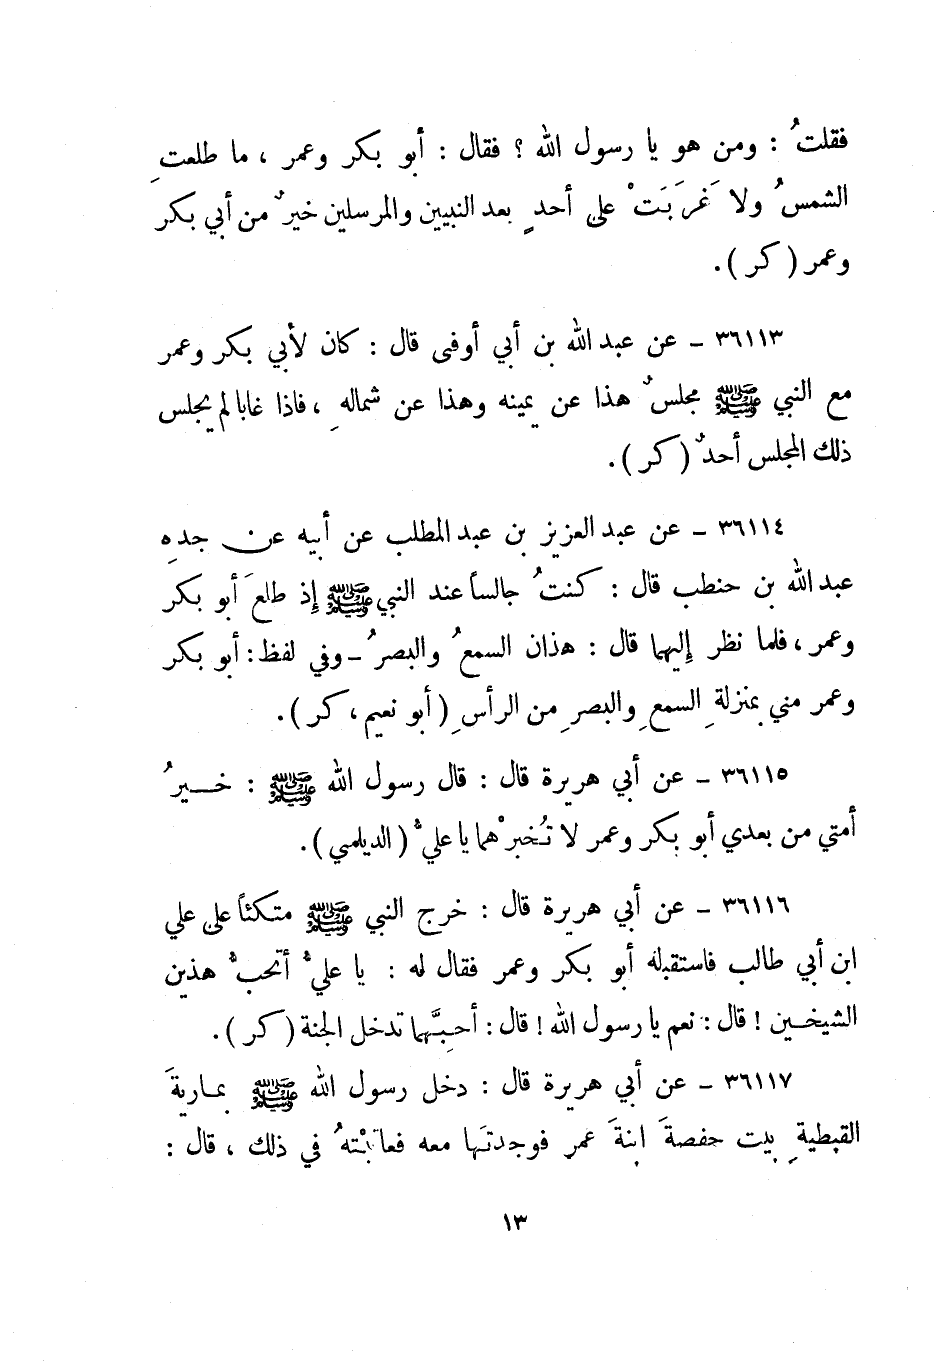 فقلتُ : ومن هو يا رسول الله ؟ فقال : أبو بكر وعمر ، ما طلعتِ
الشمسُ ولا غَرَبَتْ على أحدٍ بعد النبيين والمرسلين خيرٌ من أبي بكر
وعمر ( كر ) .
٣٦١١٣ – عن عبد الله بن أبي أوفى قال : كان لأبي بكر وعمر
مع النبي ﷺ مجلسٌ هذا عن يمينه وهذا عن شمالهِ ، فاذا غابا لم يجلس
ذلك المجلس أحدٌ ( كر ) .
٣٦١١٤ – عن عبد العزيز بن عبد المطلب عن أبيه عن جدهِ
عبد الله بن حنطب قال : كنتُ جالساً عند النبي ﷺ إذ طلعَ أبو بكر
وعمر ، فلما نظر إليهما قال : هذان السمعُ والبصرُ – وفي لفظ : أبو بكر
وعمر مني بمنزلةِ السمعِ والبصرِ من الرأسِ ( أبو نعيم ، كر ) .
٣٦١١٥ – عن أبي هريرة قال : قال رسول الله ﷺ : خيرُ
أمتي من بعدي أبو بكر وعمر لا تُخبرْهما يا عليُّ ( الديلمي ) .
٣٦١١٦ – عن أبي هريرة قال : خرج النبي ﷺ متكئاً على علي
ابن أبي طالب فاستقبله أبو بكر وعمر فقال له : يا عليُّ أتحبُّ هذين
الشيخين ! قال : نعم يا رسول الله ! قال : أحِبَّهما تدخل الجنة ( كر ) .
٣٦١١٧ – عن أبي هريرة قال : دخل رسول الله ﷺ بماريةَ
القبطيةِ بيت حفصةَ ابنةَ عمر فوجدتَها معه فعاتبْتهُ في ذلك ، قال :
١٣